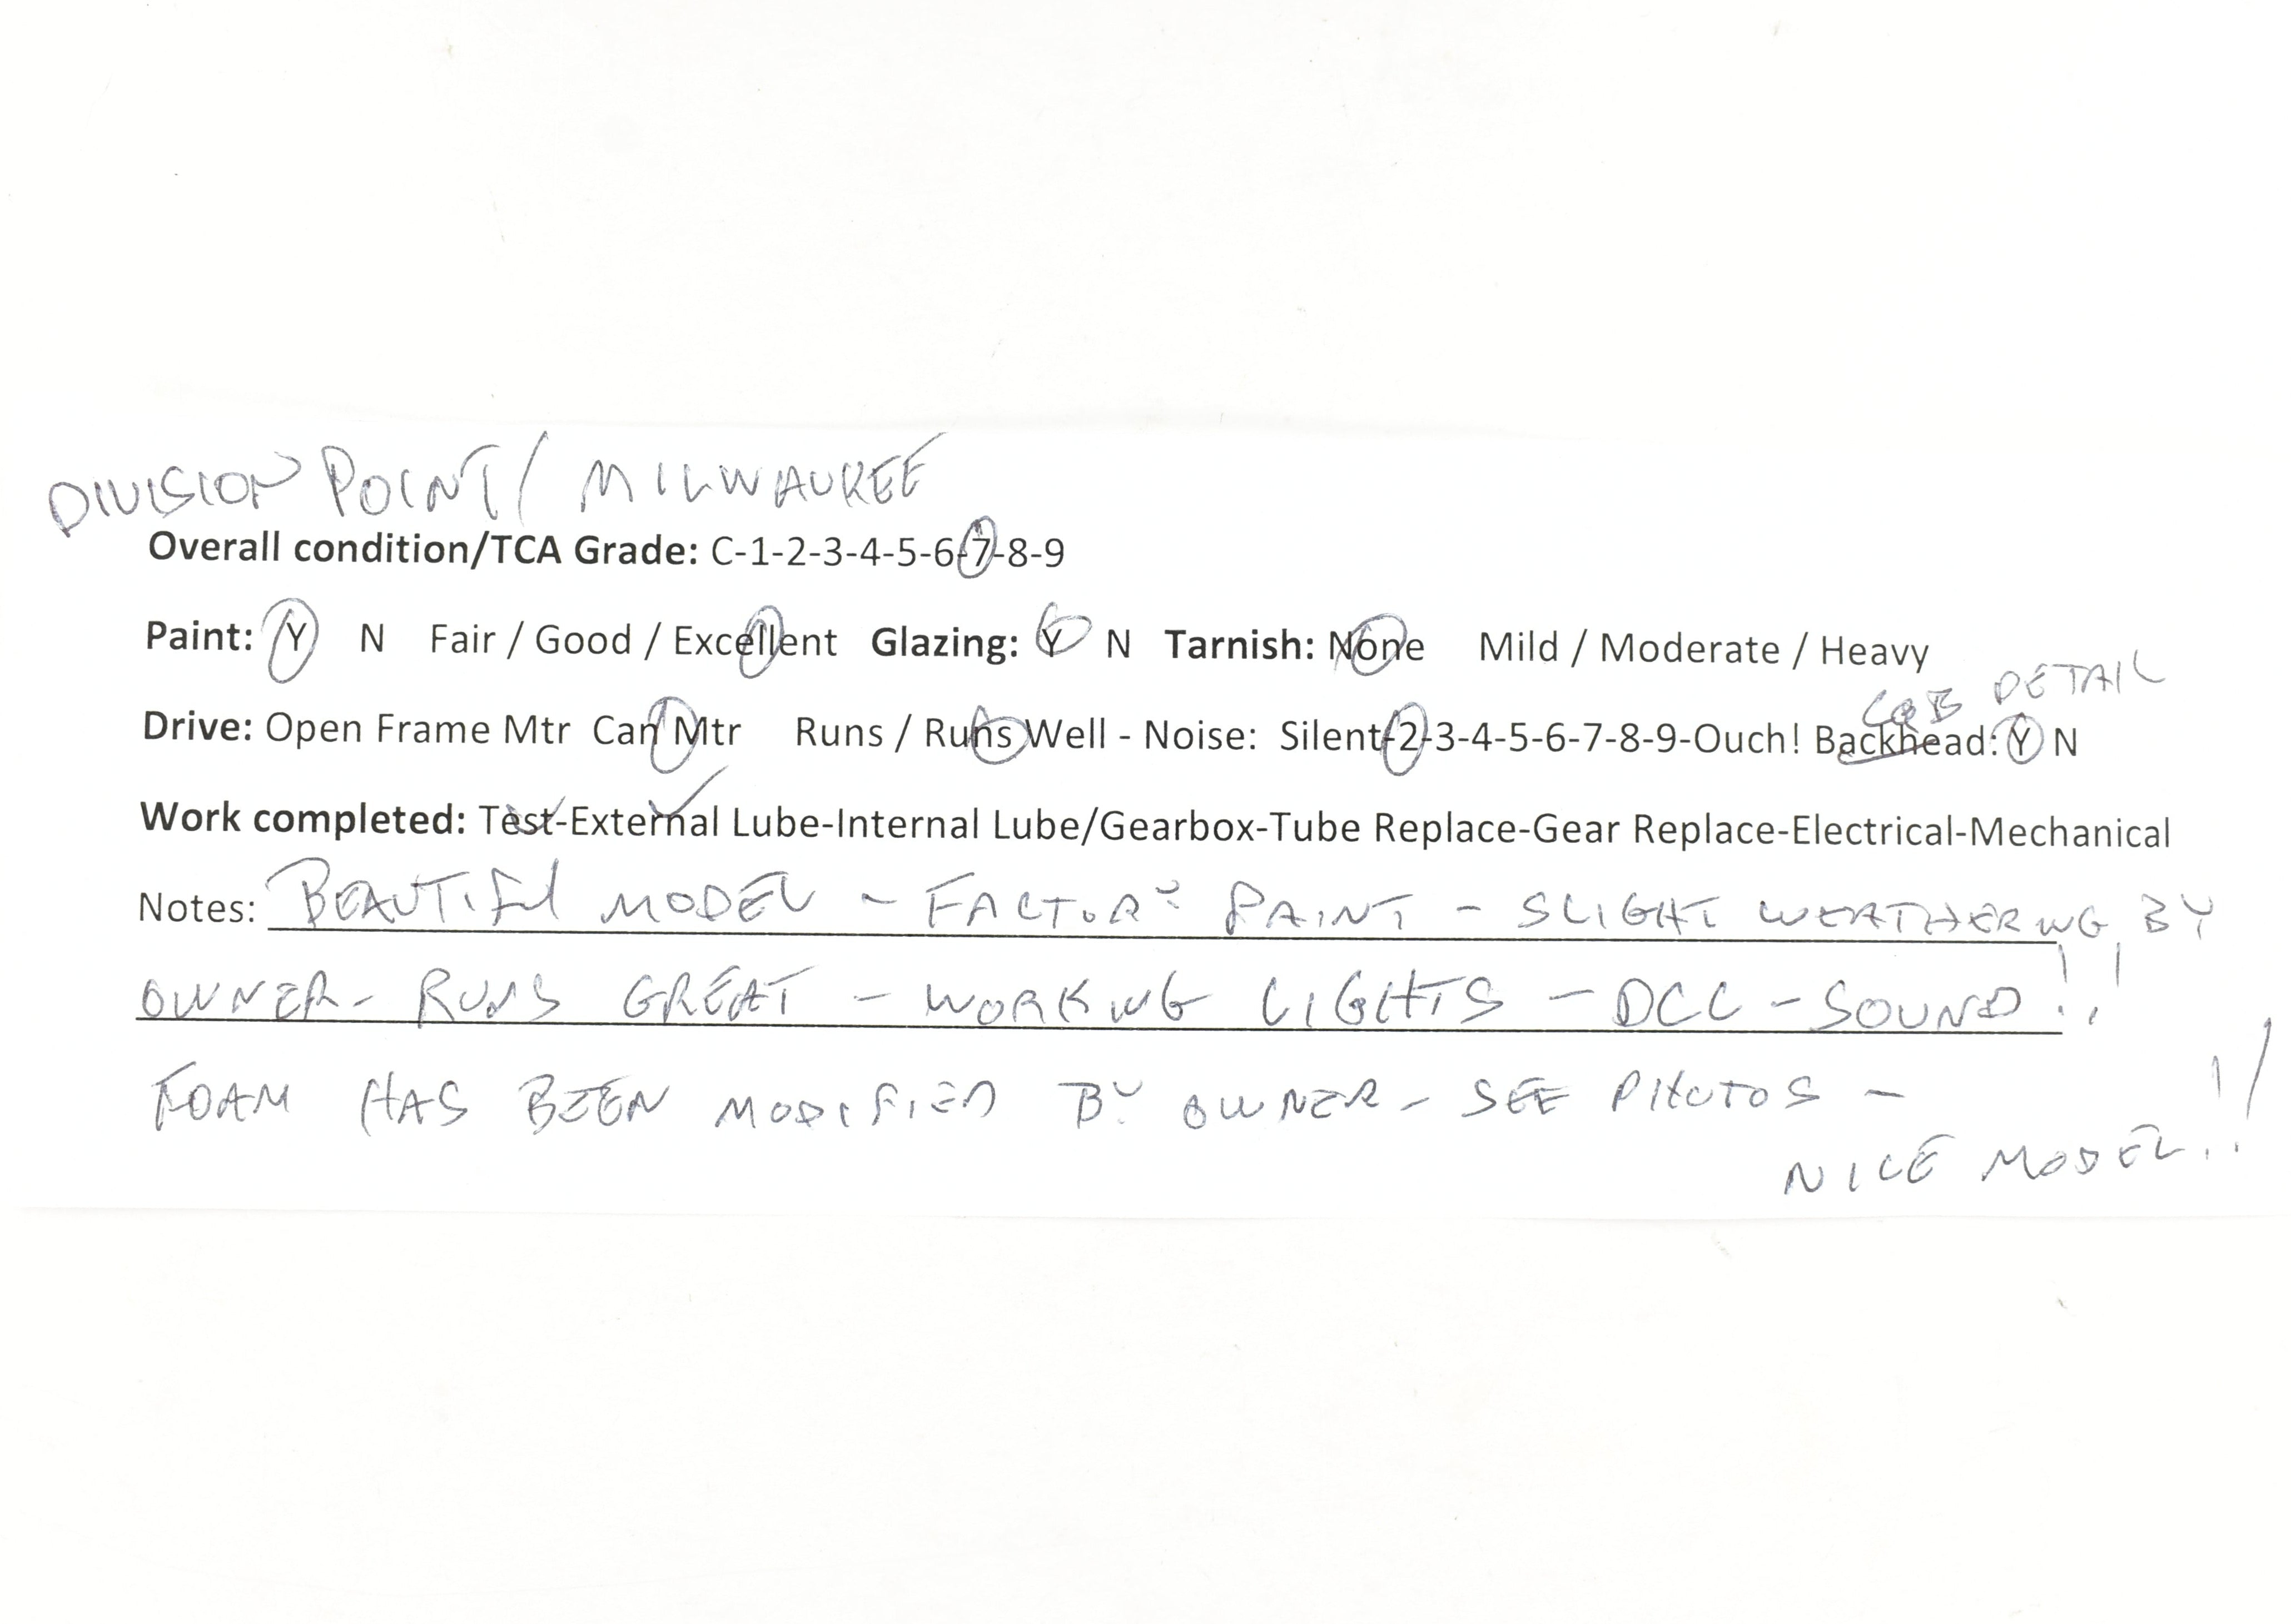 DIVISION POINT/ MILWAUKEE
Overall condition/TCA Grade: C-1-2-3-4-5-6-7-8-9
Paint: Y N Fair / Good / Excellent Glazing: Y N Tarnish: None Mild / Moderate / Heavy
CAB DETAIL
Drive: Open Frame Mtr Can Mtr Runs / Runs Well - Noise: Silent-2-3-4-5-6-7-8-9-Ouch! Backhead: Y N
Work completed: Test-External Lube-Internal Lube/Gearbox-Tube Replace-Gear Replace-Electrical-Mechanical
Notes: BEAUTIFUL MODEL - FACTORY PAINT - SLIGHT WEATHERING BY
OWNER - RUNS GREAT - WORKING LIGHTS - DCC - SOUND!!
FOAM HAS BEEN MODIFIED BY OWNER - SEE PHOTOS -
NICE MODEL!!